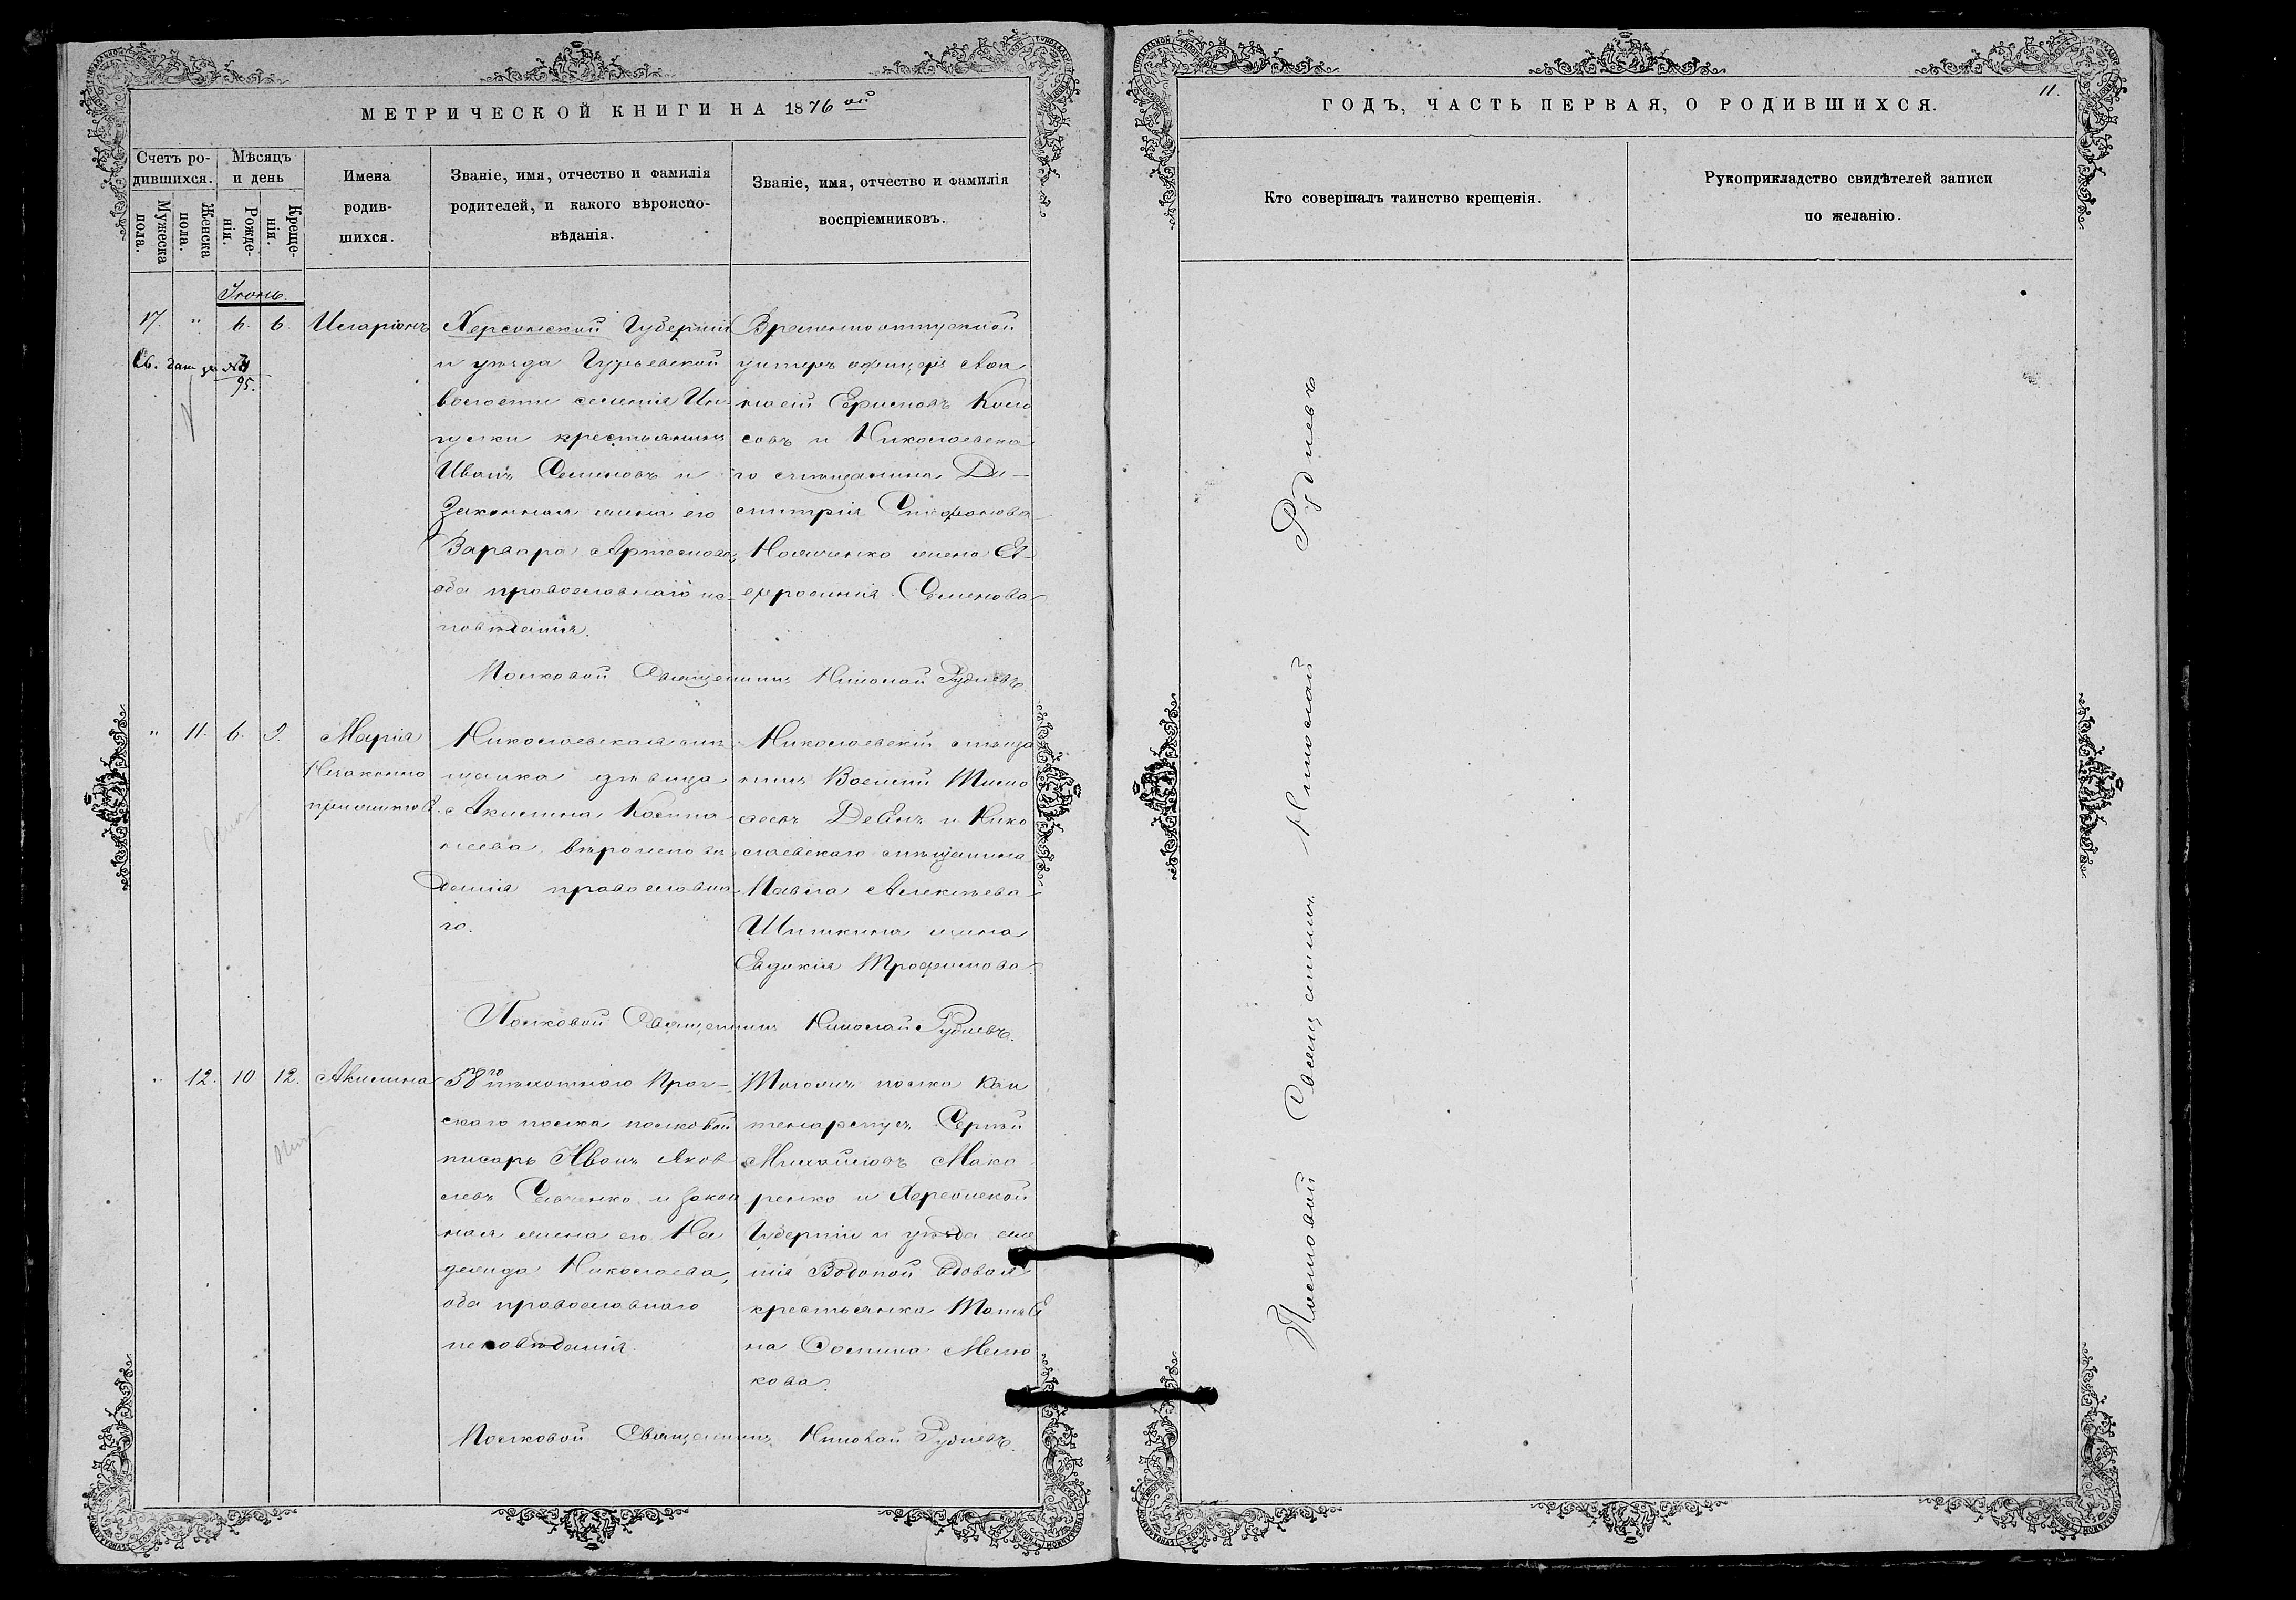 МЕТРИЧЕСКОЙ КНИГИ НА 1876 ой
Счетъ ро-
дившихся.
Мужеска
пола.
Женска
пола.
Мѣсяцъ
и день
Рожде-
нія.
Креще-
нія.
Имена
родив-
шихся.
Званіе, имя, отчество и фамилія
родителей, и какого вѣроиспо-
вѣданія.
Званіе, имя, отчество и фамилія
воспріемниковъ.
Іюнь.
17. " 6. 6. Иларіонъ
Св. 95.
Херсонской Губерніи
и уѣзда Гурьевской
волости селенія
крестьянинъ
Иванъ Семеновъ и
Законная жена его
Варвара Артемова,
оба православнаго ис-
повѣданія.
Временно отпускной
унтеръ офицеръ
и Николаевска
го мѣщанина Ди-
митрія Стефанова
жена Ев
фросинія Семенова
Полковой Священникъ Николай Рудневъ
" 11. 6. 9. Марія
Незаконно
прижитая.
Николаевская мѣ
щанка дѣвица
Акилина
вѣроисповѣ
данія православна
го.
Николаевскій мѣща
нинъ Василій Тимо
феевъ и Нико
лаевскаго мѣщанина
Павла Алексѣева
Шишкина жена
Евдокія Трофимова
Полковой Священникъ Николай Рудневъ.
" 12. 10 12. Акилина
58го пѣхотнаго Праг-
скаго полка полковой
писарь Иванъ Яков
левъ Савченко и закон
ная жена его На
дежда Николаева,
оба православнаго
исповѣданія.
Тогожъ полка Кап
тенармусъ Сергѣй
Михайловъ Мака
ренко и Херсонской
Губерніи и уѣзда селе
нія Водопой вдовая
крестьянка Татья
на
кова.
Полковой Священникъ Николай Рудневъ.
ГОДЪ, ЧАСТЬ ПЕРВАЯ, О РОДИВШИХСЯ.
11.
Кто совершалъ таинство крещенія.
Рукоприкладство свидѣтелей записи
по желанію.
Полковой Священникъ Николай Рудневъ